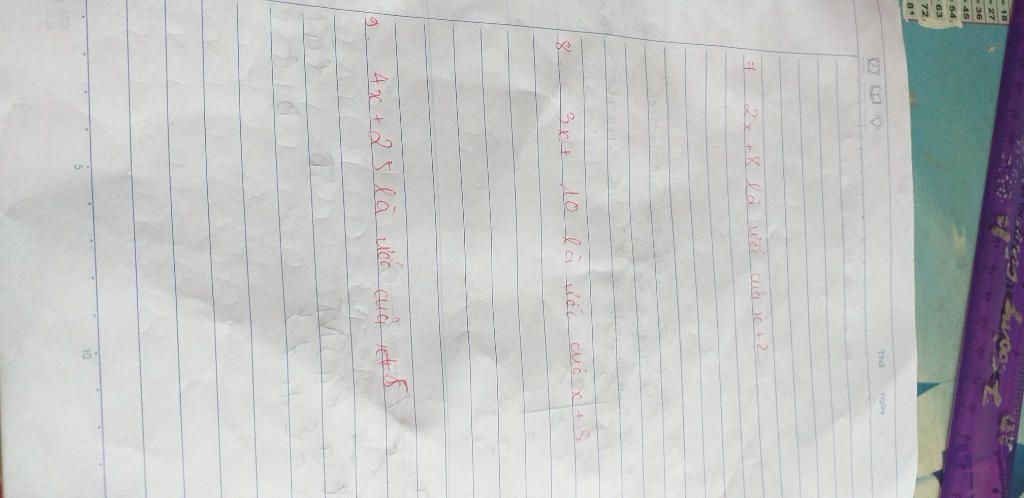 Thứ
ngày
7 2x+8 là ước của x+2
8 3x+ 10 là ước của x+5
9 4x+25 là ước của x+5
5
10
18
27
36
45
54
63
72
81